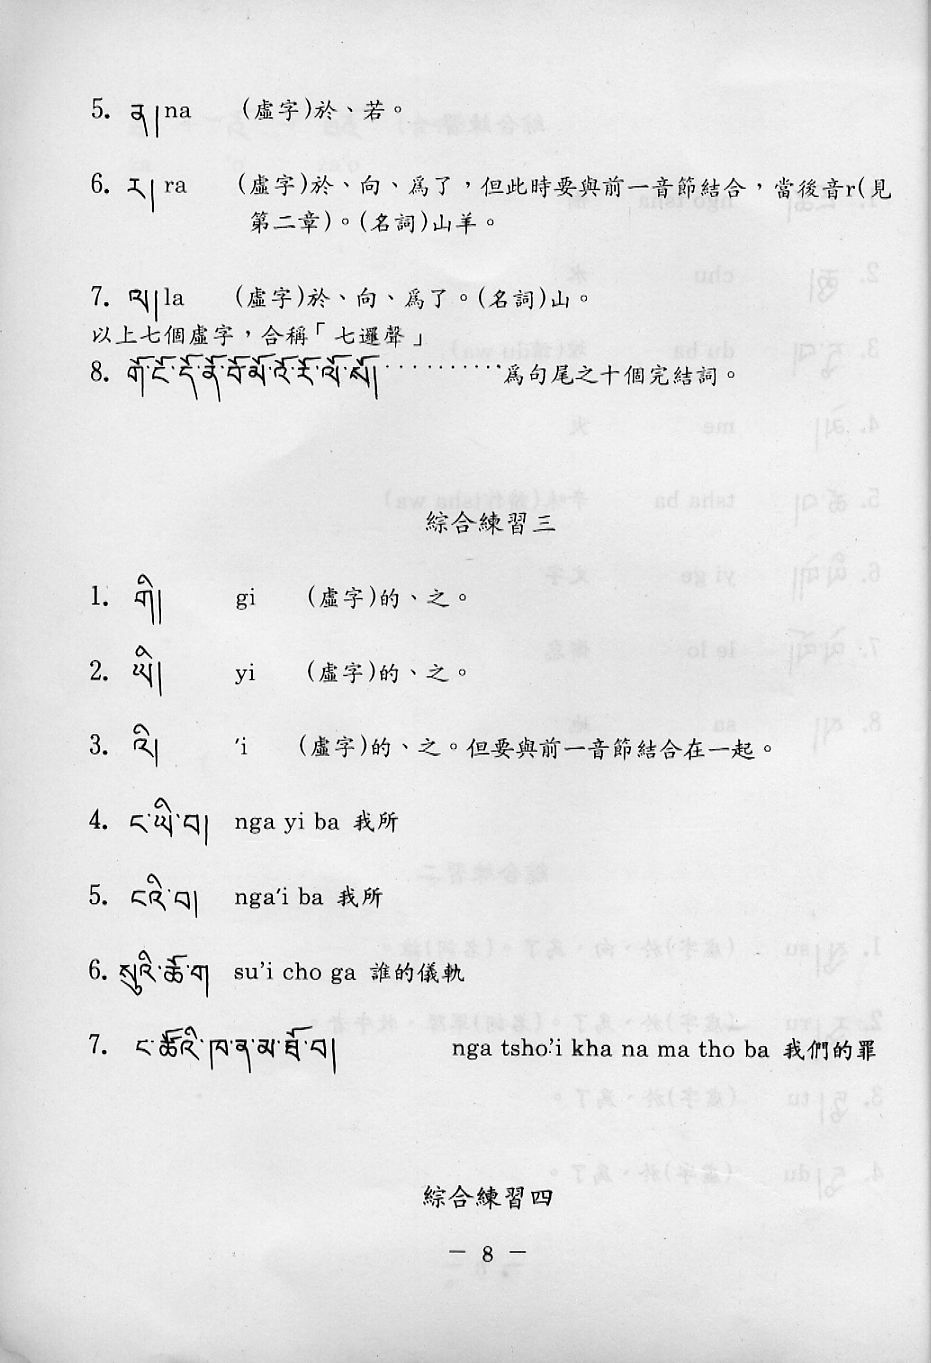 5. ན། na (虛字)於、若。
6. ར། ra (虛字)於、向、爲了，但此時要與前一音節結合，當後音r(見
第二章)。(名詞)山羊。
7. ལ། la (虛字)於、向、爲了。(名詞)山。
以上七個虛字，合稱「七邏聲」
8. གོ་ངོ་དོ་ནོ་བོ་མོ་འོ་རོ་ལོ་སོ། ··········爲句尾之十個完結詞。
綜合練習三
1. གི། gi (虛字)的、之。
2. ཡི། yi (虛字)的、之。
3. འི། 'i (虛字)的、之。但要與前一音節結合在一起。
4. ང་ཡི་བ། nga yi ba 我所
5. ངའི་བ། nga'i ba 我所
6. སུའི་ཆོ་ག su'i cho ga 誰的儀軌
7. ང་ཚོའི་ཁ་ན་མ་ཐོ་བ། nga tsho'i kha na ma tho ba 我們的罪
綜合練習四
— 8 —